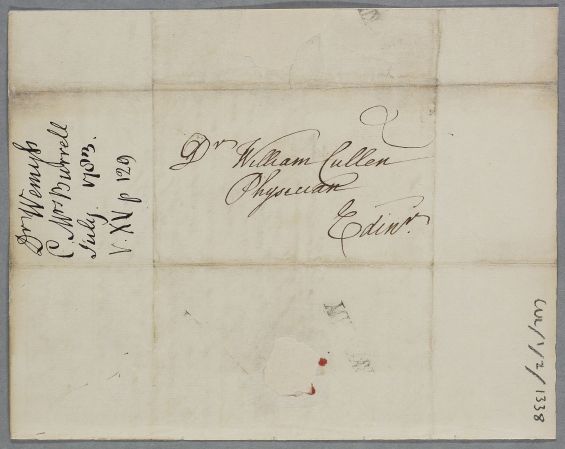 Dr William Cullen
Physician
Edinr.
Dr Wemyss
C Mrs Burrell
July 1783.
V. XV p 129
CUL/1/2/1338